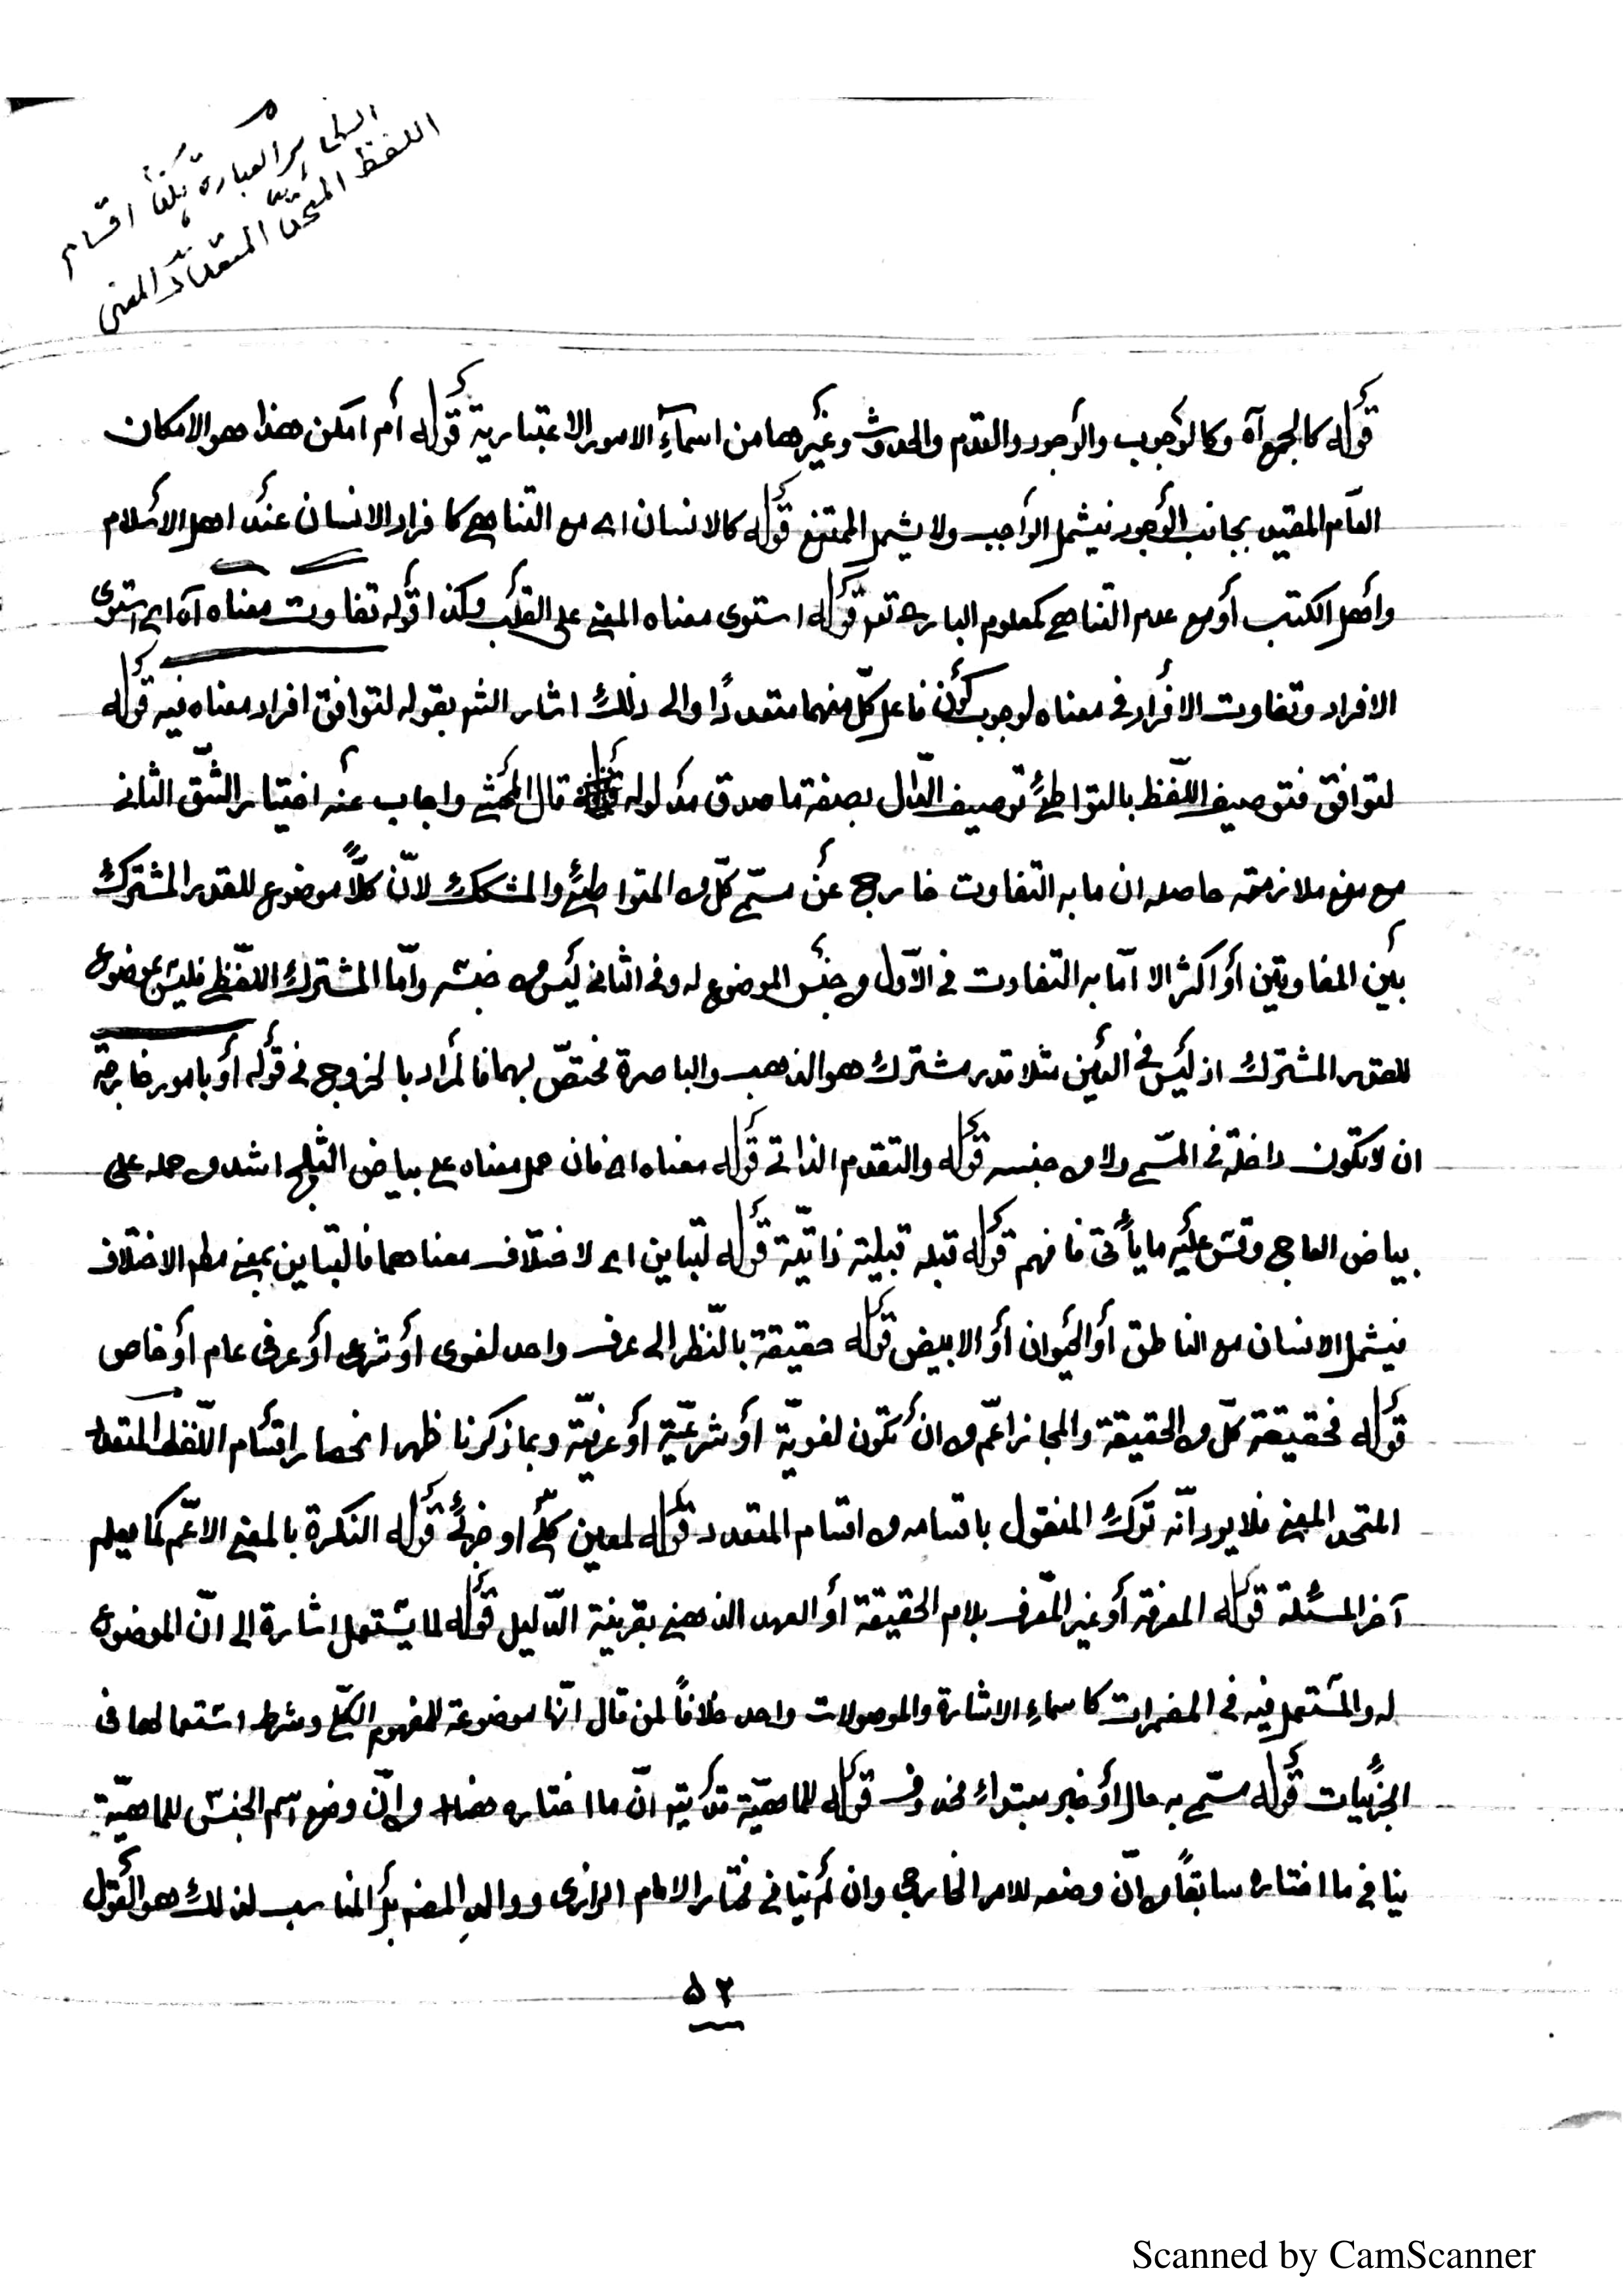 العبارة اقسام
اللفظ المتحد المتعدد المعنى
قوله كالجمع آه وكالوجوب والوجود والقدم والحدوث وغيرها من اسماءِ الامور الاعتبارية قوله أم امكن هذا هو الامكان
العام المقيد بجانب الوجود فيشمل الواجب ولا يشمل الممتنع قوله كالانسان اى مع التناهى كافراد الانسان عند اهل الاسلام
وأهل الكتب أو مع عدم التناهى كمعلوم البارى تعـ قوله استوى معناه المعنى على القلب وكذا قوله تفاوت معناه آه اى استوى
الافراد وتفاوت الافراد فى معناه لوجوب كون فاعل كلّ منهما متعددًا والى ذلك اشار الشـ بقوله لتوافق افراد معناه فيه قوله
لتوافق فتوصيف اللّفظ بالتواطئ توصيف الدّال بصفة ما صدق مدلوله قال المحشى واجاب عنه اختيار الشّق الثانى
مع منع ملازمته حاصله ان ما به التفاوت خارج عن مسمّى كلّ من المتواطئ والمشكك لانّ كلّاً موضوع للقدر المشترك
بين المفاوتين أو اكثر الا انّ ما به التفاوت فى الاّول من جنس الموضوع له وفى الثانى ليس من جنسه وامّا المشترك اللفّظى فليس بموضوع
للقدر المشترك اذ ليس فى العين مثلا قدر مشترك هو الذهب والباصرة مختصّ بهما فالمراد بالخروج فى قوله أو بامور خارجة
ان لا تكون داخلة فى المسّمى ولا من جنسه قوله والتقدم الذاتى قوله معناه اى فان حمل معناه على بياض الثلج اشد من حمله على
بياض العاج وقس عليه ما يأتى فافهم قوله قبله قبلية ذاتيّة قوله لتباين اى لاختلاف معناهما فالتباين بمعنى مطلـ الاختلاف
فيشمل الانسان مع الناطق أو الحيوان أو الابيض قوله حقيقة بالنّظر الى عرف واحد لغوى أو شرعى أو عرفى عام أو خاص
قوله فحقيقة كلّ من الحقيقة والمجاز اعّم من ان تكون لغويّة أو شرعيّة أو عرفيّة وبما ذكرنا ظهر انحصار اقسام اللّفظ المتعدد
المتحد المعنى فلا يرد انّه ترك المنقول باقسامه من اقسام المتعدد قوله لمعين كلّى او جزئى قوله النكرة بالمعنى الاعّم كما يعلم
آخر المسئلة قوله المعرفة أو غير المعّرف بلام الحقيقة أو العهد الذهنى بقرينة الدّليل قوله لما يستعمل اشارة الى انّ الموضوع
له والمستعمل فيه فى المضمرات كاسماءِ الاشارة والموصولات واحد خلافًا لمن قال انّها موضوعة للمفهوم الكلّى وشرط استعمالها فى
الجزئيات قوله مسمّى به حال أو خبر مبتداءٍ محذوف قوله للماهيّة انّ ما اختاره هنا من انّ وضع اسم الجنس للماهيّة
ينافى ما اختاره سابقًا من انّ وضعه للامر الخارجى وان لم ينافى مختار الامام الرازى ووالدِ المصنـ بل المناسب لذلك هو القول
٥٢
Scanned by CamScanner